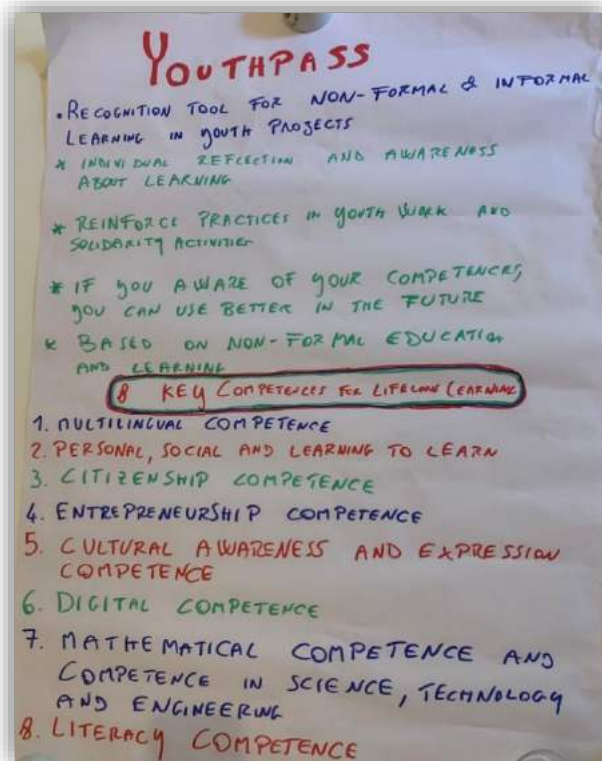 YOUTHPASS
• RECOGNITION TOOL FOR NON-FORMAL & INFORMAL
LEARNING IN YOUTH PROJECTS
* INDIVIDUAL REFLECTION AND AWARENESS
ABOUT LEARNING
* REINFORCE PRACTICES IN YOUTH WORK AND
SOLIDARITY ACTIVITIES
* IF YOU AWARE OF YOUR COMPETENCES,
YOU CAN USE BETTER IN THE FUTURE
* BASED ON NON-FORMAL EDUCATION
AND LEARNING
8 KEY COMPETENCES FOR LIFELONG LEARNING
1. MULTILINGUAL COMPETENCE
2. PERSONAL, SOCIAL AND LEARNING TO LEARN
3. CITIZENSHIP COMPETENCE
4. ENTREPRENEURSHIP COMPETENCE
5. CULTURAL AWARENESS AND EXPRESSION
COMPETENCE
6. DIGITAL COMPETENCE
7. MATHEMATICAL COMPETENCE AND
COMPETENCE IN SCIENCE, TECHNOLOGY
AND ENGINEERING
8. LITERACY COMPETENCE